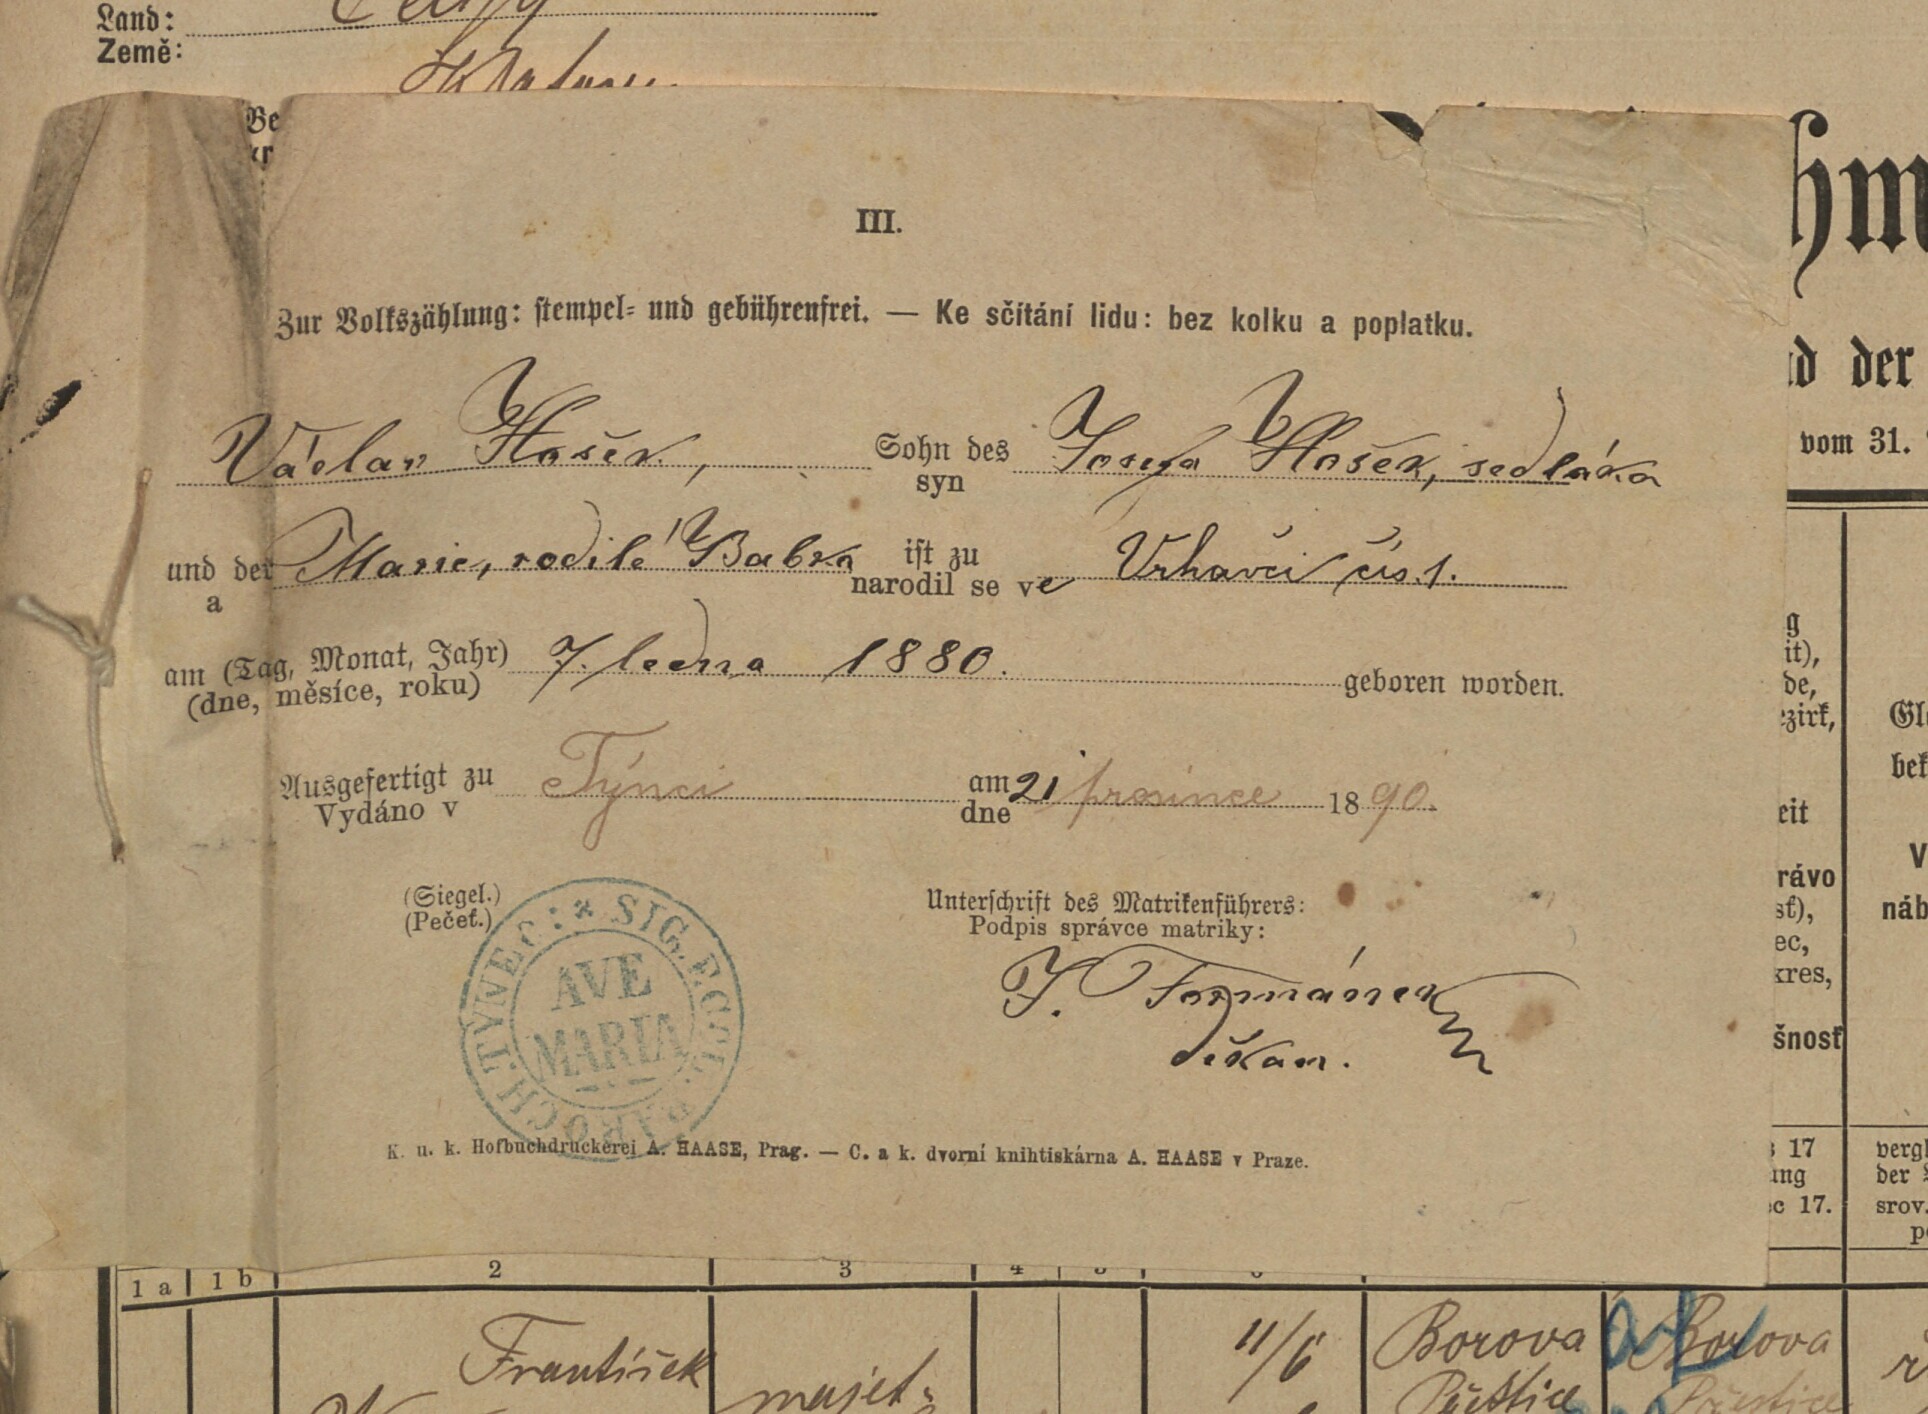 Land:
Země:
III.
Zur Volkszählung: stempel- und gebührenfrei. — Ke sčítání lidu: bez kolku a poplatku.
Václav Hošek, Sohn des Josefa Hošek, sedláka
syn
und der Marie, rodilé Babka ist zu Vrhavči čís. 1.
a narodil se ve
am (Tag, Monat, Jahr) 7. ledna 1880. geboren worden.
(dne, měsíce, roku)
Ausgefertigt zu Týnci am 21 prosince 1890.
Vydáno v dne
(Siegel.) Unterschrift des Matrikenführers:
(Pečeť.) Podpis správce matriky:
AVE
MARIA
J. Formánek
děkan.
K. u. k. Hofbuchdruckerei A. HAASE, Prag. — C. a k. dvorní knihtiskárna A. HAASE v Praze.
d der
vom 31.
it),
de,
ezirk,
eit
rávo
sť),
ec,
kres,
šnosť
17
ung
17.
vergl
der
srov.
1 a 1 b 2 3
František 11/6 Borova Borova
majet- Přeštice Přeštice